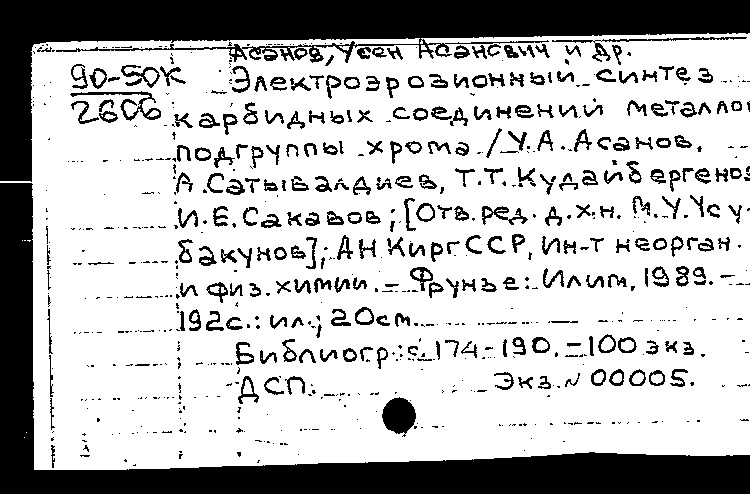 Асанов, Усен Асанович и др.
90-50К Электроэрозионный синтез
2606 карбидных соединений металлов
подгруппы хрома / У.А. Асанов,
А. Сатывалдиев, Т.Т. Кудайбергенов
И.Е. Сакавов; [Отв. ред. д.х.н. М.У. Усу-
бакунов]; АН КиргССР, Ин-т неорган.
и физ. химии. - Фрунзе: Илим, 1989. -
192с.: ил.; 20см.
Библиогр.: с. 174-190. - 100 экз.
ДСП. Экз. N 00005.